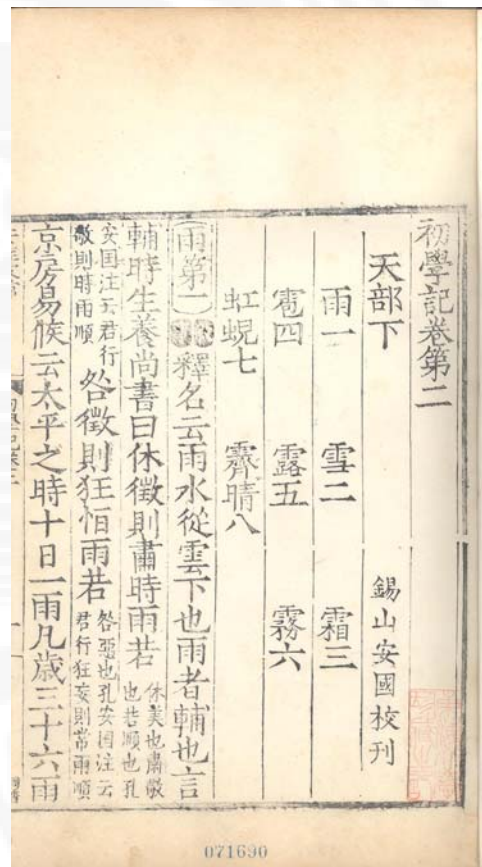 初學記卷第二
天部下 錫山安國校刊
雨一 雪二 霜三
雹四 露五 霧六
虹蜺七 霽晴八
雨第一 釋名云雨水從雲下也雨者輔也言
輔時生養尚書曰休徵則肅時雨若 休美也肅敬也若順也孔
安国注云君行敬則時雨順 咎徵則狂恒雨若 咎惡也孔安国注云君行狂妄則常雨順
京房易候云太平之時十日一雨凡歲三十六雨
071690